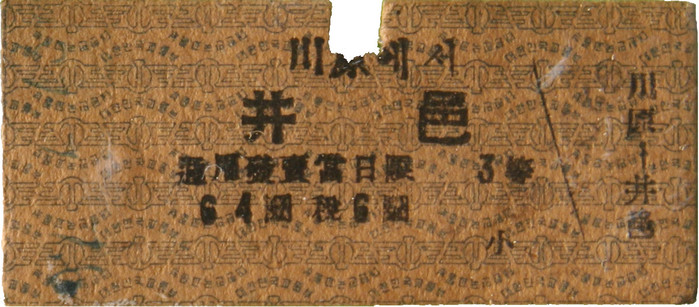 川原에서
井邑
通用發賣當日限 3等
64圜 税6圜
小
川原-井邑